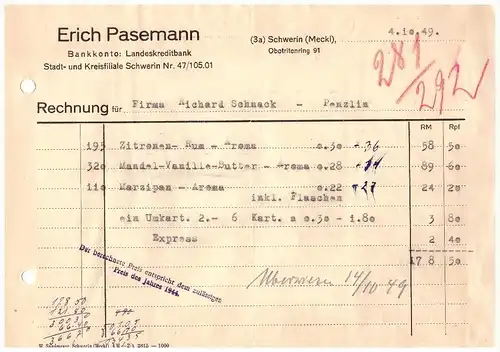 Erich Pasemann
Bankkonto: Landeskreditbank
Stadt- und Kreisfiliale Schwerin Nr. 47/105.01
(3a) Schwerin (Meckl),
Obotritenring 91
4.10.49.
281/292
Rechnung für Firma Richard Schmack - Penzlin
RM Rpf
195 Zitronen- Rum - Aroma 0.30 58 50
320 Mandel-Vanille-Butter - Aroma 0.28 89 60
110 Marzipan - Aroma 0.22 24 20
inkl. Flaschen
ein Umkart. 2.- 6 Kart. a 0.30 - 1.80 3 80
Express 2 40
178 50
Der berechnete Preis entspricht dem zulässigen
Preis des Jahres 1944.
Überwiesen 14/10 49
178 50